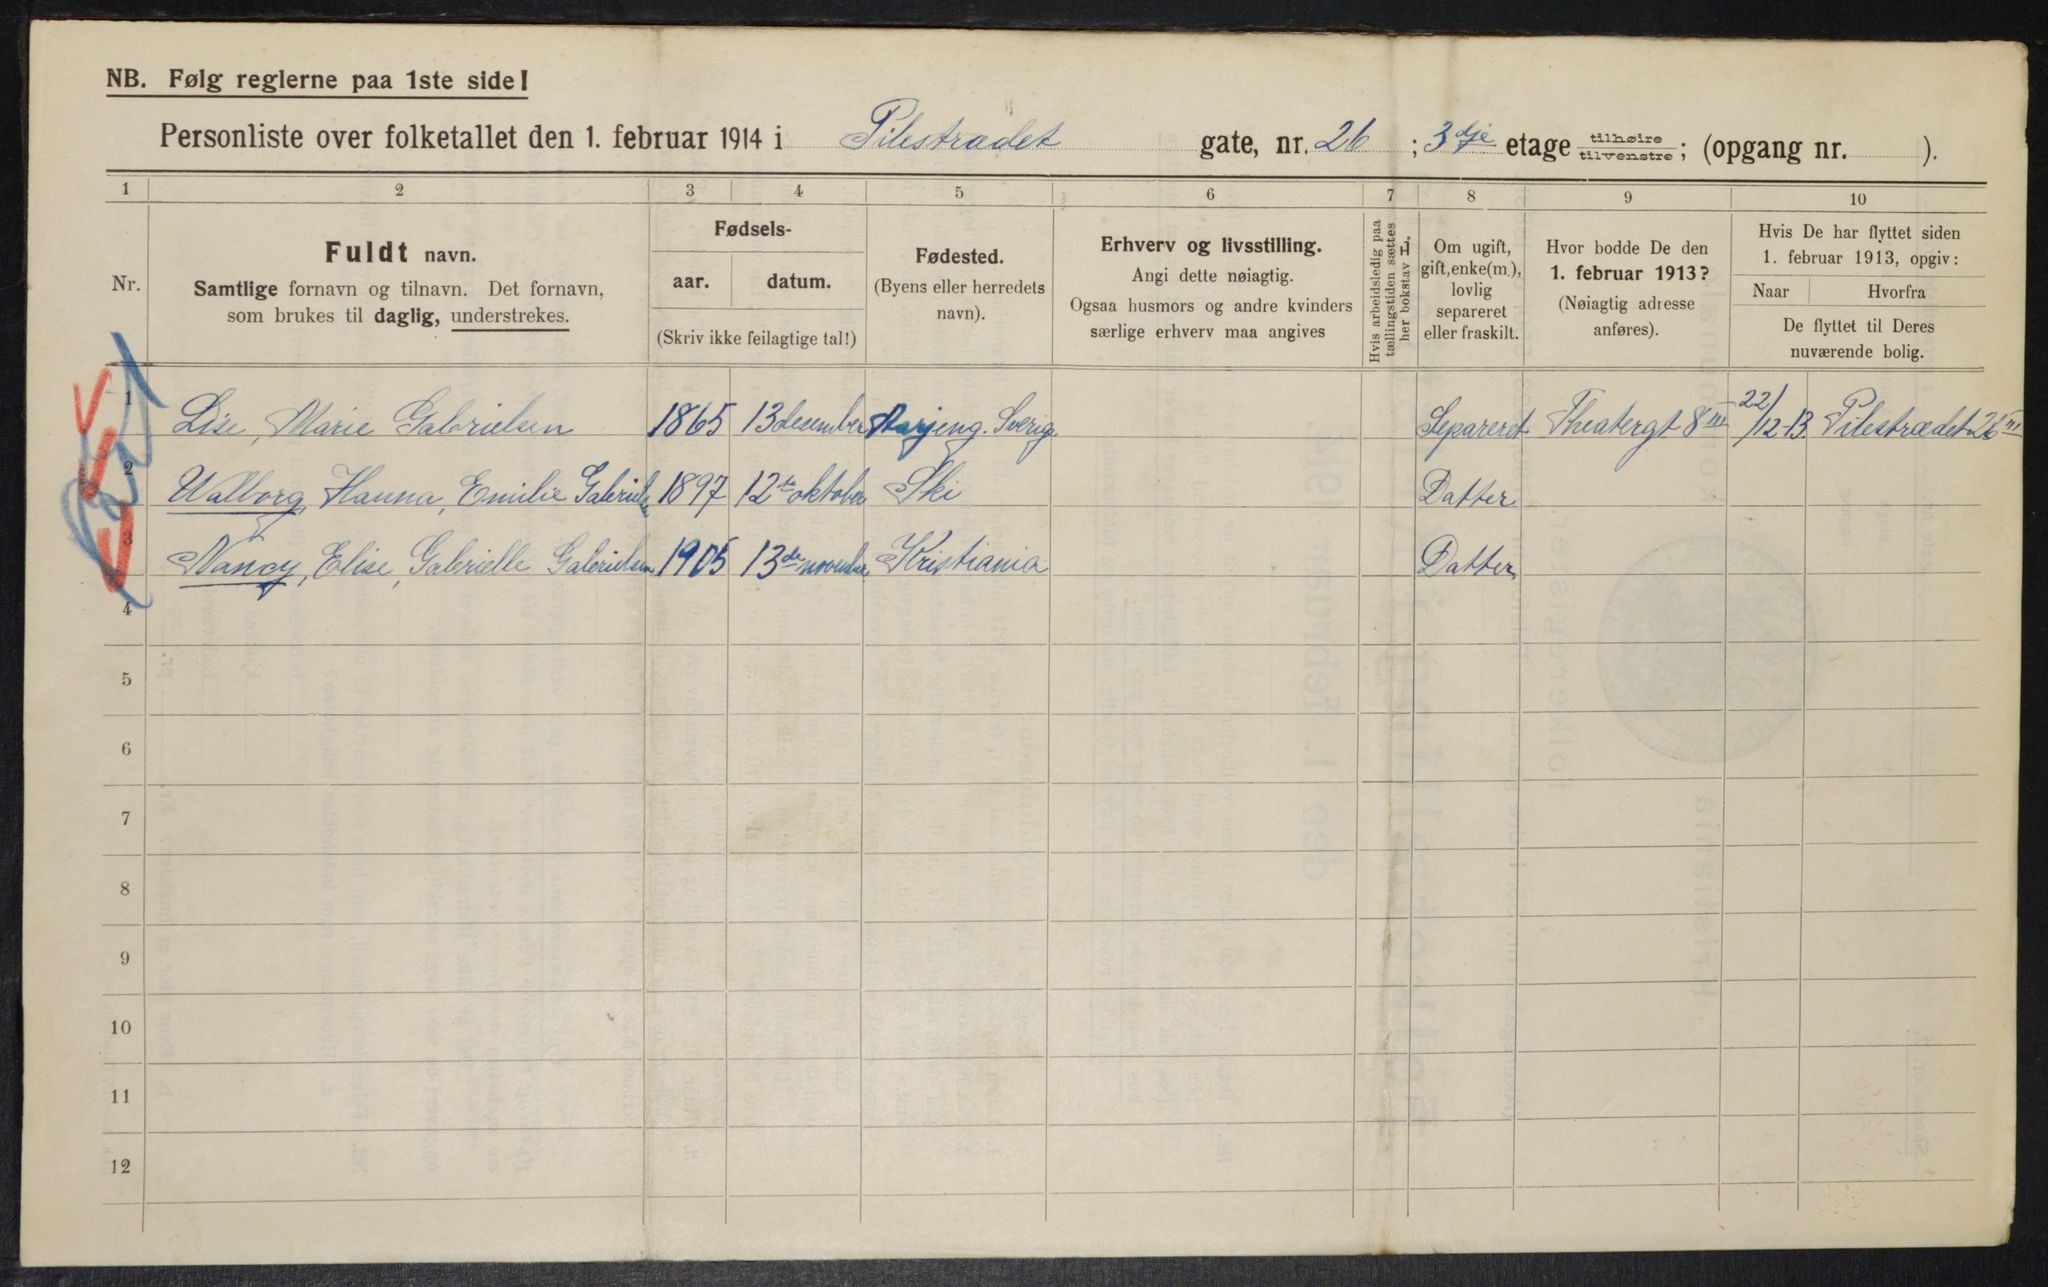 NB. Følg reglerne paa 1ste side!
Personliste over folketallet den 1. februar 1914 i Pilestradet gate, nr. 26 ; 3dje etage tilhøire tilvenstre ; (opgang nr. ).
1 2 3 4 5 6 7 8 9 10
Nr.
Fuldt navn.
Samtlige fornavn og tilnavn. Det fornavn,
som brukes til daglig, understrekes.
Fødsels-
aar. datum.
(Skriv ikke feilagtige tal!)
Fødested.
(Byens eller herredets
navn).
Erhverv og livsstilling.
Angi dette nøiagtig.
Ogsaa husmors og andre kvinders
særlige erhverv maa angives
Hvis arbeidsledig paa
tællingstiden sættes
her bokstav L.
Om ugift,
gift, enke(m.),
lovlig
separeret
eller fraskilt.
Hvor bodde De den
1. februar 1913?
(Nøiagtig adresse
anføres).
Hvis De har flyttet siden
1. februar 1913, opgiv:
Naar Hvorfra
De flyttet til Deres
nuværende bolig.
1 Lise, Marie Gabrielsen 1865 13 desember Sverig Separeret Theatergt 8 III 22/12-13 Pilestrædet 26 III
2 Walborg, Hanna, Emilie 1897 12te oktober Ski Datter
3 Nancy, Elise, Gabrielle Gabrielsen 1905 13de november Kristiania Datter
4
5
6
7
8
9
10
11
12